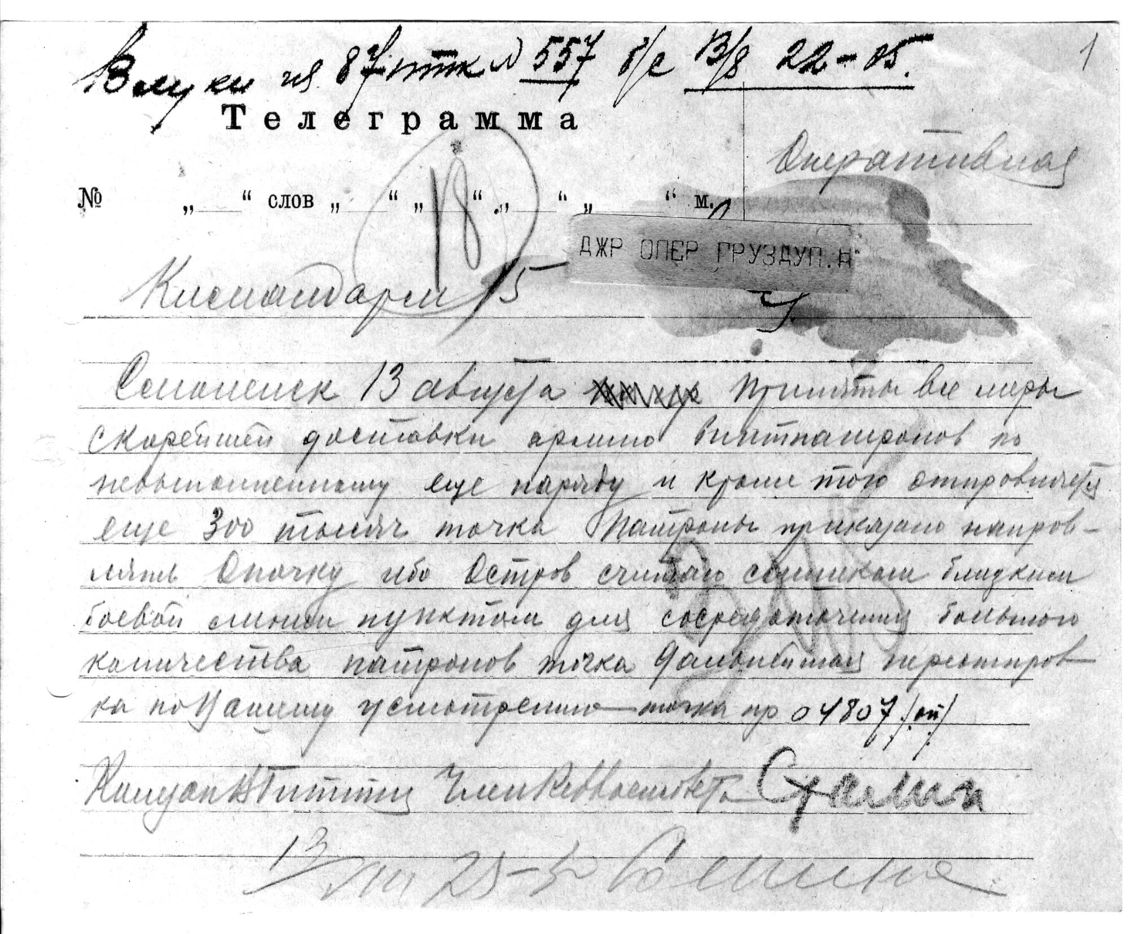 Влуки ия 87 птк № 557 б/с 13/8 22-05.
1
Телеграмма
Оперативная
№ „ “ слов „ “ „ “ „ “ „ “ м.
18
ДЖР ОПЕР ГРУЗДУП.Н
Командарм 15
Смоленск 13 августа Приняты все меры
скорейшей доставки армию винтпатронов по
невыполненному еще наряду и кроме того отправляется
еще 300 тысяч точка Патроны приказано направ-
лять Опочку ибо Остров считаю слишком близким
боевой линии пунктом для сосредоточения большого
количества патронов точка Дальнейшая переотправ-
ка по Вашему усмотрению точка нр 04807/оп/
Комзап Гиттис Член Реввоенсовета Сталин
13 25-5